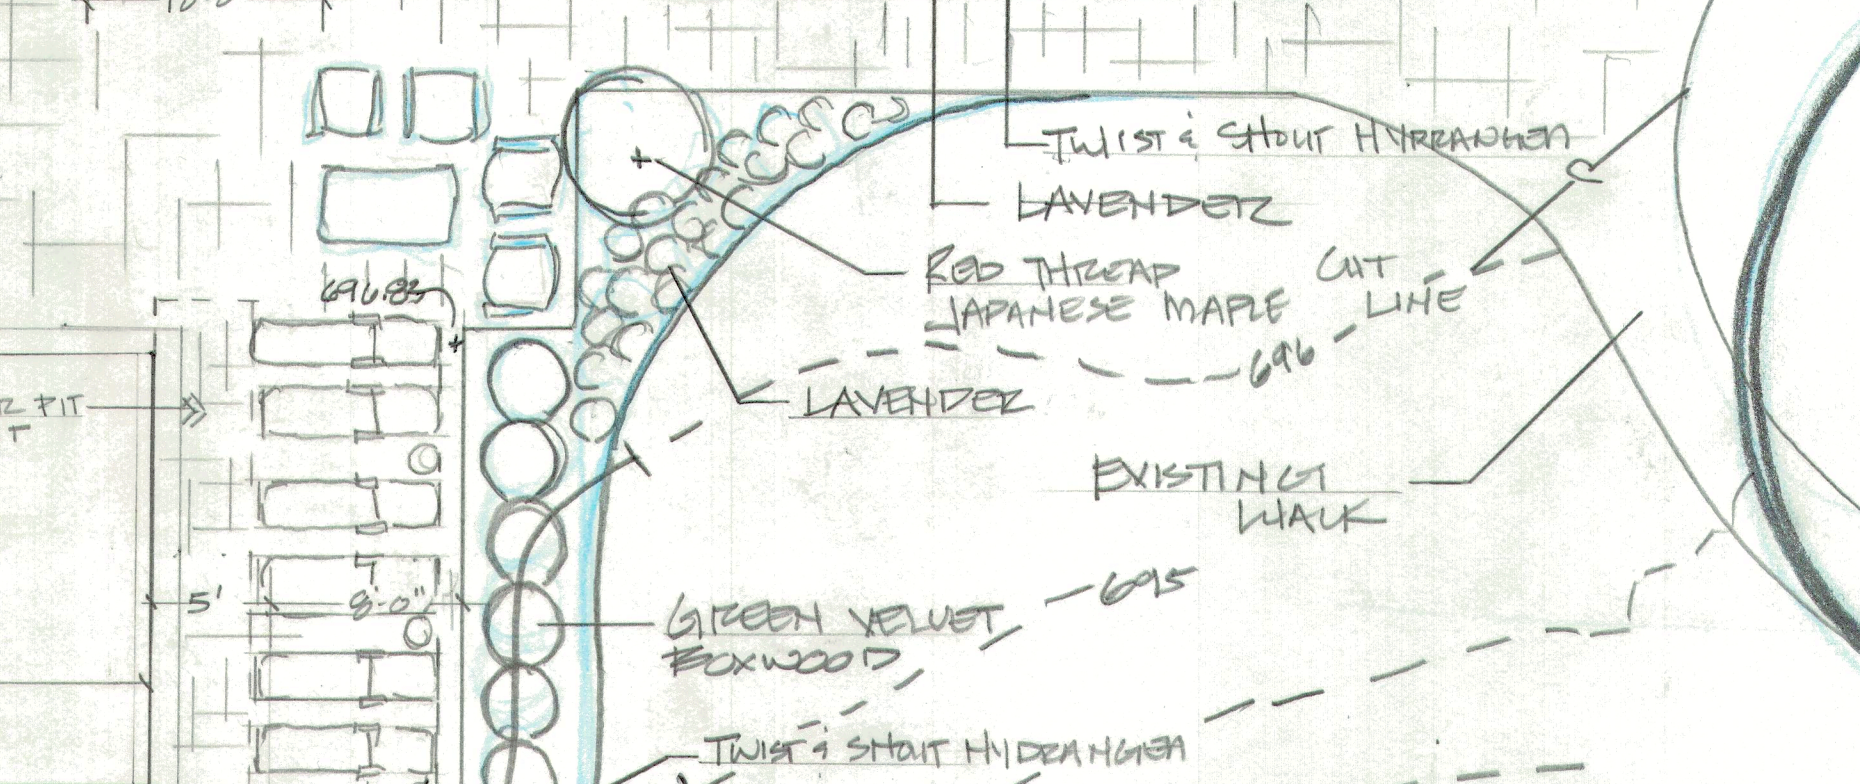 TWIST & SHOUT HYRRANGEA
LAVENDER
RED THREAD
JAPANESE MAPLE
CUT
LINE
696.83
696
LAVENDER
PIT
EXISTING
WALK
695
5'
8'-0"
GREEN VELVET
BOXWOOD
TWIST & SHOUT HYDRANGEA